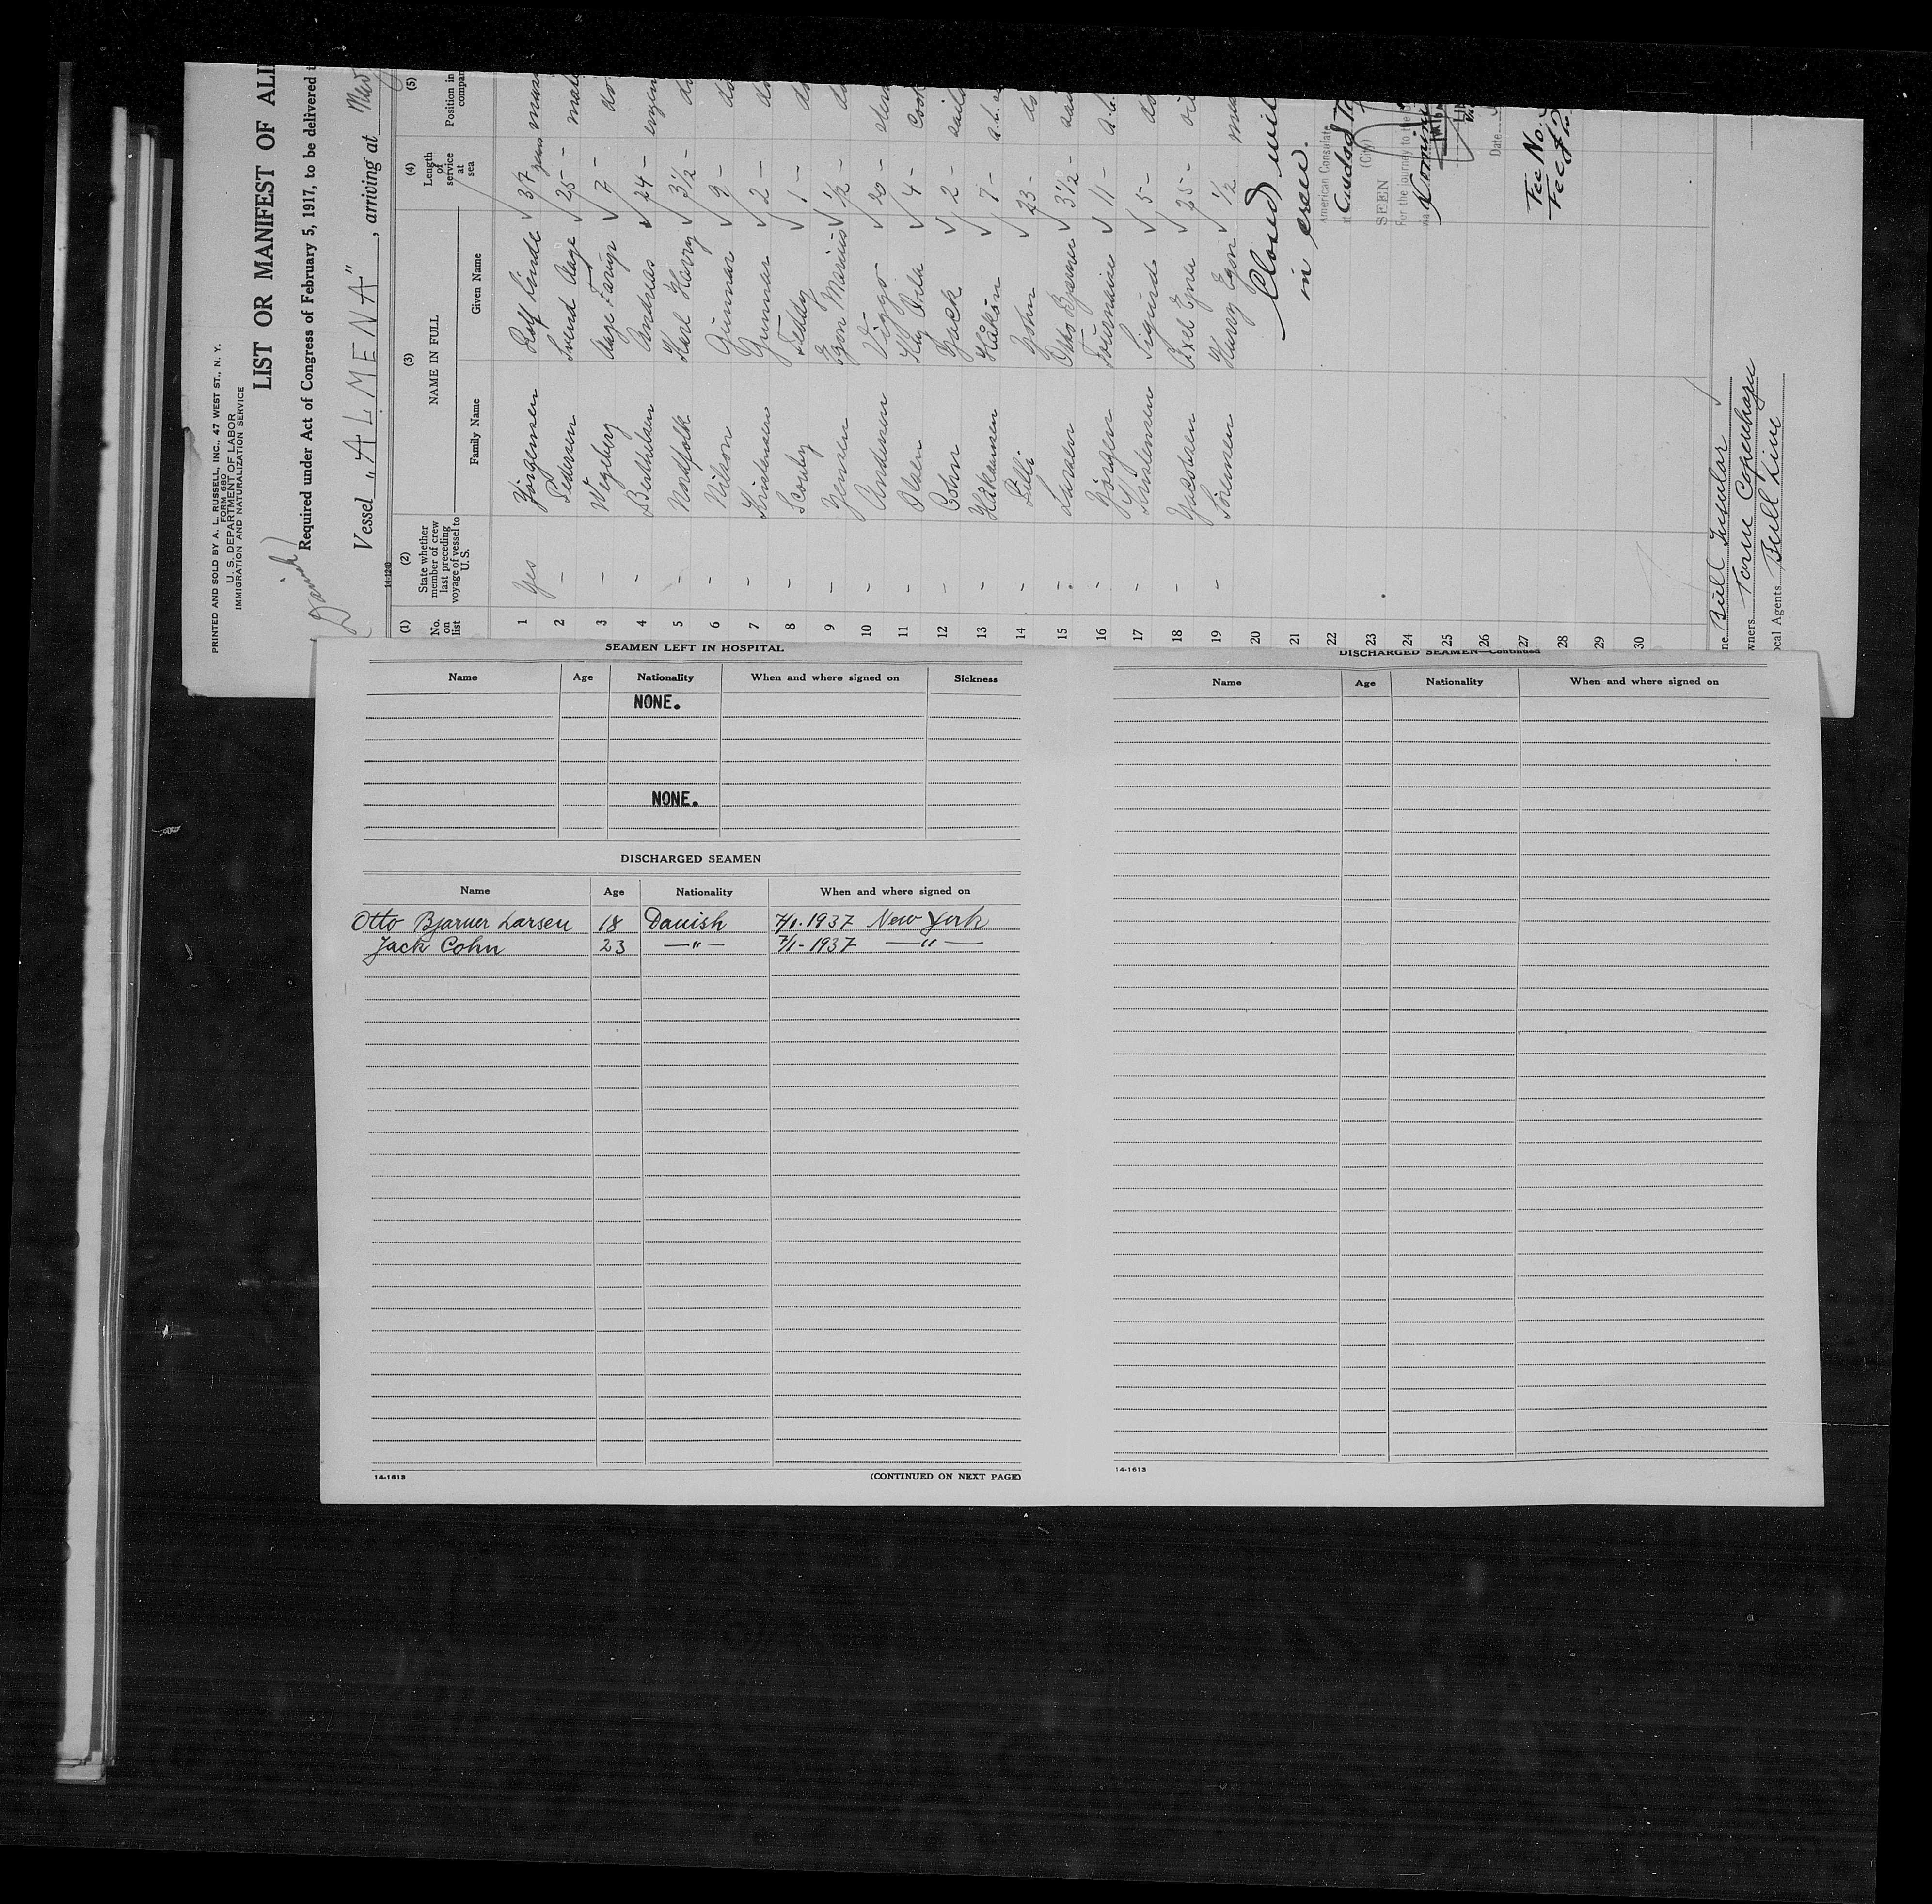 PRINTED AND SOLD BY A. L. RUSSELL, INC., 47 WEST ST., N. Y.
FORM 680
U. S. DEPARTMENT OF LABOR
IMMIGRATION AND NATURALIZATION SERVICE
LIST OR MANIFEST OF ALI
(Danish)
Required under Act of Congress of February 5, 1917, to be delivered t
Vessel „ALMENA", arriving at New
14-1240
(1) (2) (3) (4) (5)
No. on list State whether member of crew last preceding voyage of vessel to U. S. NAME IN FULL Length of service at sea Position in compan
Family Name Given Name
1 Yes Jörgensen Rolf Linde √ 37 years mas
2 – Pedersen Svend Aage √ 25 – mate
3 – Wegeberg Aage √ 7 – do
4 – Berthelsen Andreas √ 24 – engen
5 – Nordfolk Karl Harry √ 3½ – do
6 – Nilson Gunnar √ 9 – do
7 – Kristensen Gunnar √ 2 – do
8 – Scouby Teddy √ 1 – do
9 – Jensen Egon Marius √ ½ – do
10 – Andersen Viggo √ 20 – stew
11 – Olsen Kay √ 4 – cook
12 – Cohn Jack √ 2 – sail
13 – Håkansen Håkon √ 7 – a.b.
14 – John √ 23 – do
15 – Larsen Otto Bjarner √ 3½ – sail
16 – Jörgen √ 11 – a.b.
17 – Kristensen Sigurd √ 5 – do
18 – Jacobsen Axel √ 25 – oil
19 – Sörensen Harry Egon √ ½ mes
20
21
22
23
24
25
26
27
28
29
30
Closed wit
in crew.
American Consulate
at Ciudad T
(City)
SEEN
For the journey to the
via
Date
Fee No.
ne Bull Insular
wners Torm Copenhagen
ocal Agents Bull Line
SEAMEN LEFT IN HOSPITAL
Name Age Nationality When and where signed on Sickness
NONE.
NONE.
DISCHARGED SEAMEN
Name Age Nationality When and where signed on
Otto Bjarner Larsen 18 Danish 7/1.1937 New York
Jack Cohn 23 —"— 7/1-1937 —"—
14-1613
(CONTINUED ON NEXT PAGE)
DISCHARGED SEAMEN—Continued
Name Age Nationality When and where signed on
14-1613